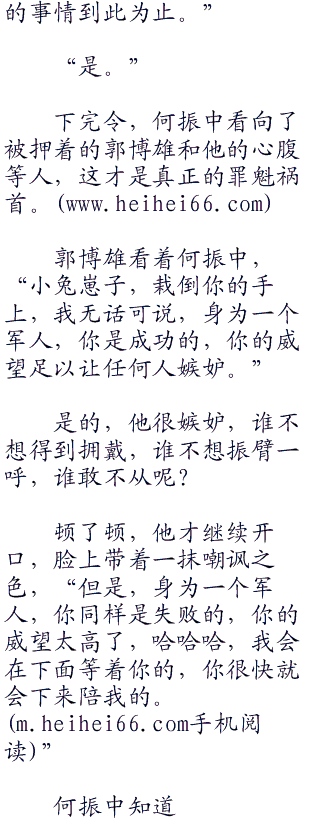 的事情到此为止。”
“是。”
下完令，何振中看向了
被押着的郭博雄和他的心腹
等人，这才是真正的罪魁祸
首。(www.heihei66.com)
郭博雄看着何振中，
“小兔崽子，栽倒你的手
上，我无话可说，身为一个
军人，你是成功的，你的威
望足以让任何人嫉妒。”
是的，他很嫉妒，谁不
想得到拥戴，谁不想振臂一
呼，谁敢不从呢？
顿了顿，他才继续开
口，脸上带着一抹嘲讽之
色，“但是，身为一个军
人，你同样是失败的，你的
威望太高了，哈哈哈，我会
在下面等着你的，你很快就
会下来陪我的。
(m.heihei66.com手机阅
读)”
何振中知道